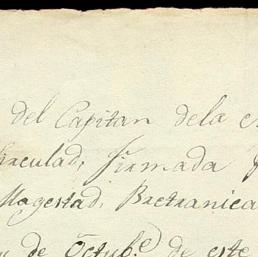 del Capitan dela
firmada
Magestad, Bretranica
de Octub.e de este